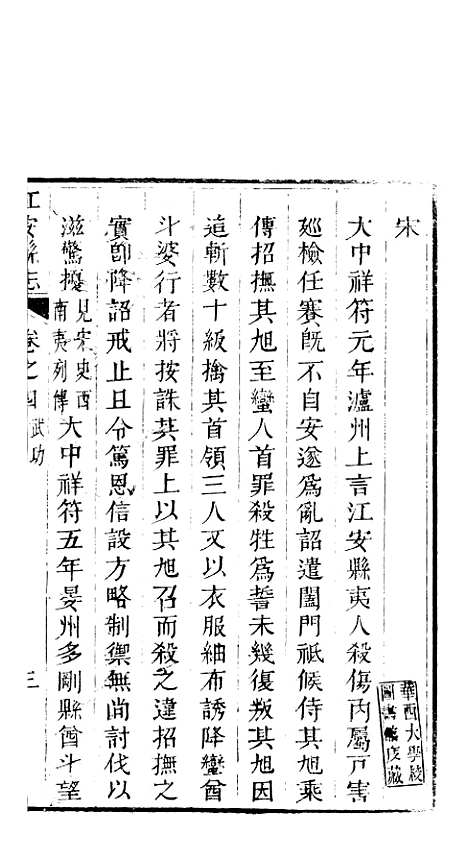 宋
大中祥符元年瀘州上言江安縣夷人殺傷内屬戸害
廵檢任賽旣不自安遂爲亂詔遣閤門祗候侍其旭乘
傳招撫其旭至蠻人首罪殺牲爲誓未幾復叛其旭因
追斬數十級擒其首領三人又以衣服紬布誘降蠻酋
斗婆行者將按誅其罪上以其旭召而殺之違招撫之
實卽降詔戒止且令篤恩信設方略制禦無尚討伐以
滋驚擾見宋史西南夷列傳大中祥符五年晏州多剛縣酋斗望
江安縣志
卷之四
武功
三
華西大學
圖書館庋藏